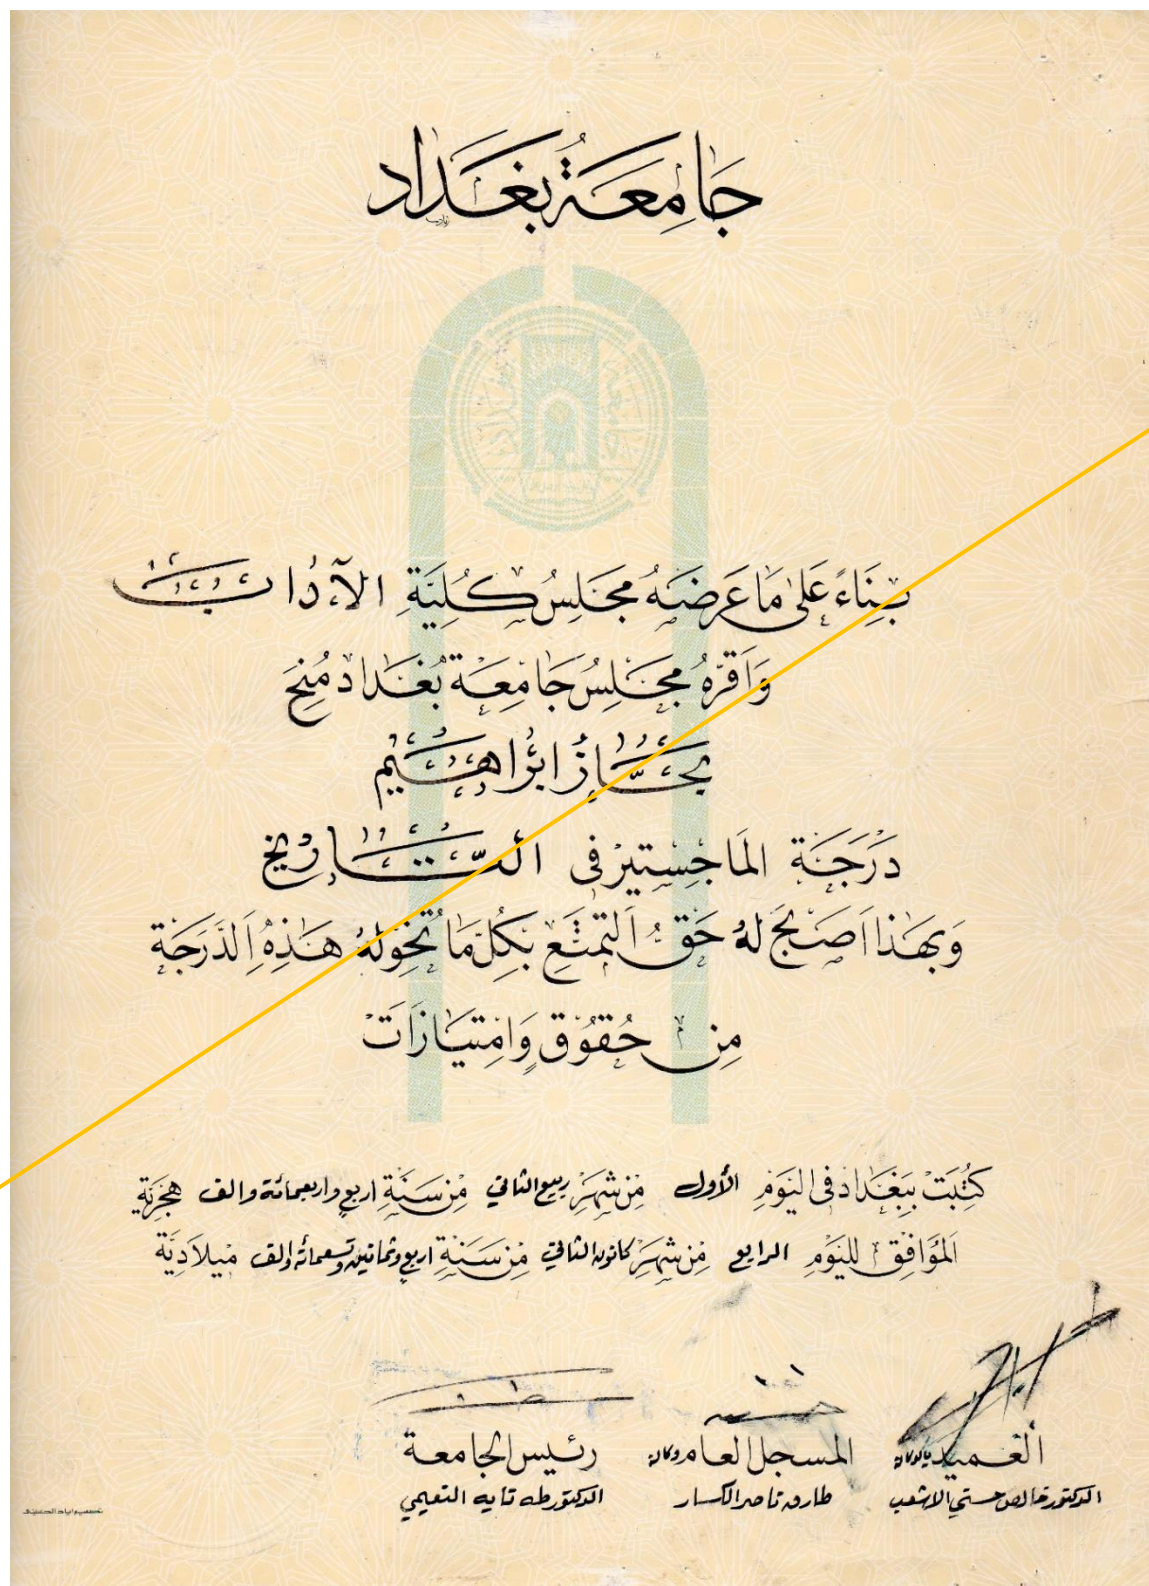 جَامِعَةُ بَغدَاد
بِنَاءً عَلىٰ مَا عَرضَهُ مَجلِسُ كُليَّةِ الآداب
وَاَقرّهُ مَجلِسُ جَامِعَة بَغداد مُنِحَ
بحّاز ابراهيم
دَرَجَة المَاجِستير في التّاريخ
وَبهذا اَصبَحَ لهُ حَقُّ التَمتّعِ بكُلِّ مَا تُخوّلهُ هَذِهِ الدَّرَجَة
مِن حُقُوق وَامتيَازَات
كُتِبَت ببَغدَاد في اليَومِ الأول مِن شَهرِ ربيع الثاني مِن سَنَةِ اربع واربعمائة والف هِجريّة
المُوَافِق لليَومِ الرابع مِن شَهرِ كانون الثاني مِن سَنَةِ اربع وثمانين وتسعمائة والف ميلاديّة
العميد بالوكالة المسجل العام وكالة رئيس الجامعة
الدكتور خالص حسني الاشعب طارق ناصر الكسار الدكتور طه تايه النعيمي